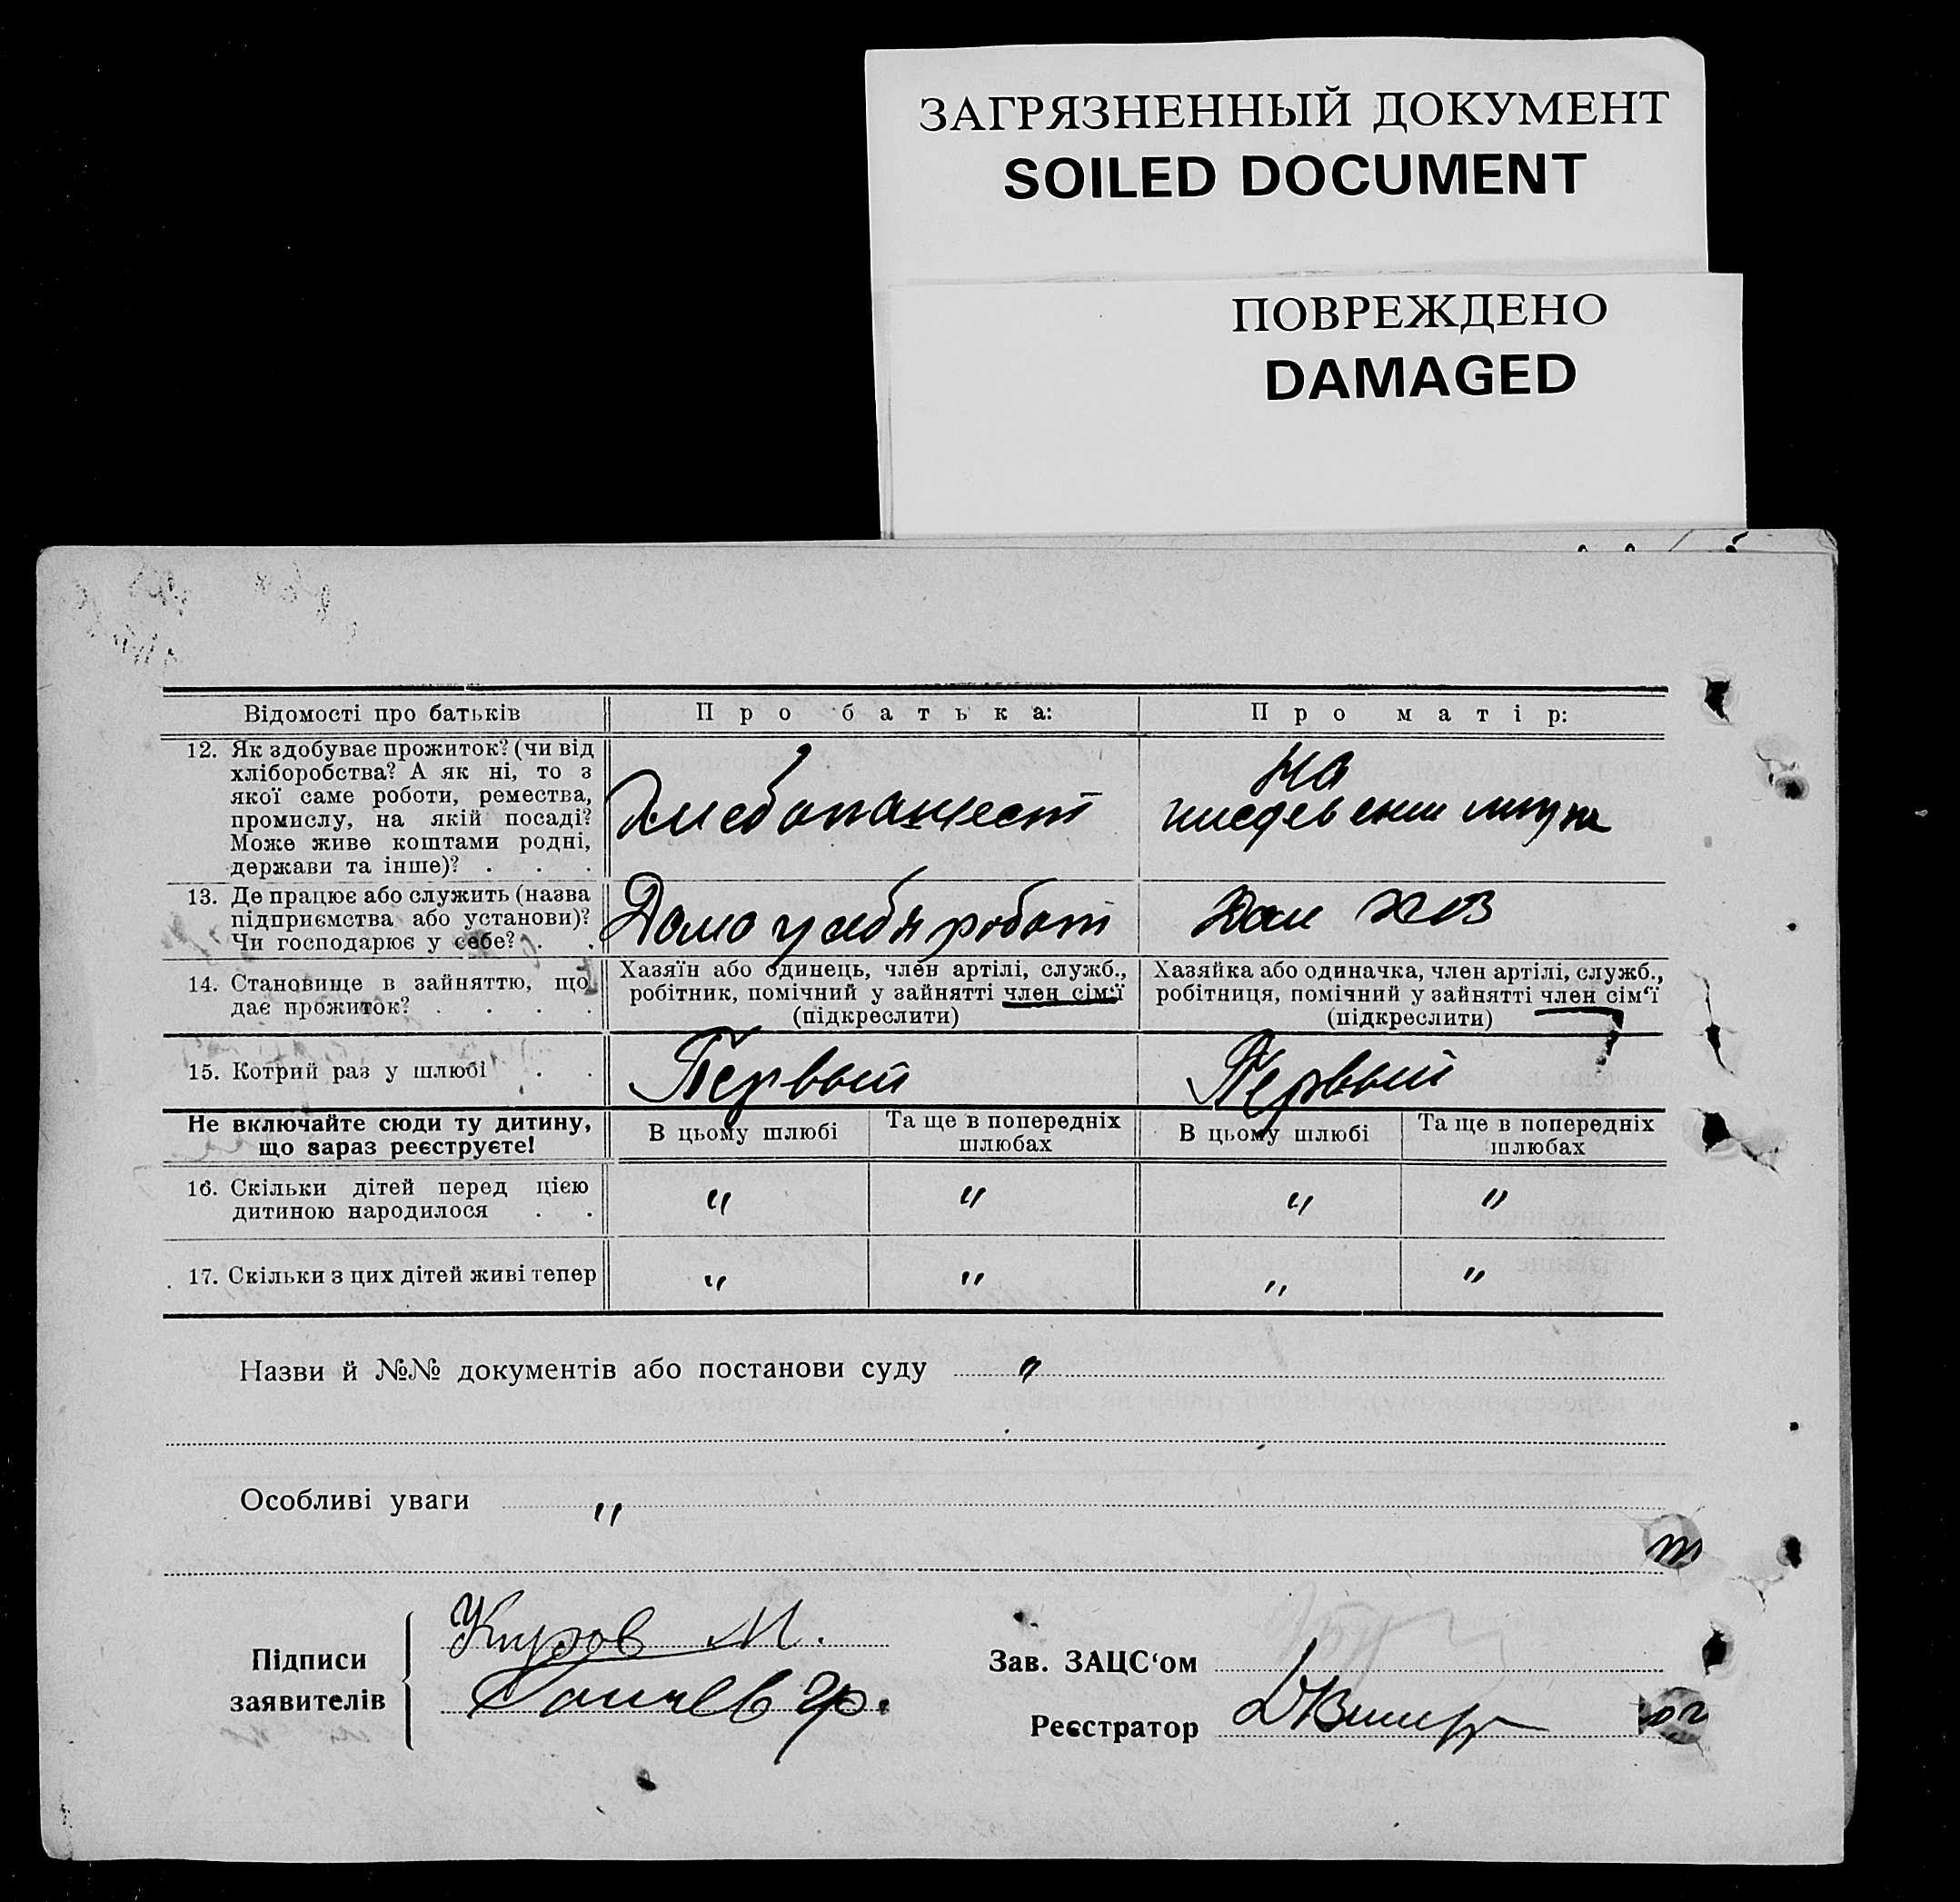 ЗАГРЯЗНЕННЫЙ ДОКУМЕНТ
SOILED DOCUMENT
ПОВРЕЖДЕНО
DAMAGED
Відомості про батьків
Про батька:
Про матір:
12. Як здобуває прожиток? (чи від
хліборобства? А як ні, то з
якої саме роботи, ремества,
промислу, на якій посаді?
Може живе коштами родні,
держави та інше)? . . .
на
13. Де працює або служить (назва
підприємства або установи)?
Чи господарює у себе? . .
Дома у себя
14. Становище в зайняттю, що
дає прожиток? . . . .
Хазяїн або одинець, член артілі, служб.,
робітник, помічний у зайнятті член сім‘ї
(підкреслити)
Хазяйка або одиначка, член артілі, служб.,
робітниця, помічний у зайнятті член сім‘ї
(підкреслити)
15. Котрий раз у шлюбі . .
Первый
Первый
Не включайте сюди ту дитину,
що зараз реєструєте!
В цьому шлюбі
Та ще в попередніх
шлюбах
В цьому шлюбі
Та ще в попередніх
шлюбах
16. Скільки дітей перед цією
дитиною народилося . .
"
"
"
"
17. Скільки з цих дітей живі тепер
"
"
"
"
Назви й №№ документів або постанови суду "
Особливі уваги "
Підписи
заявителів
М.
Гр.
Зав. ЗАЦС‘ом
Реєстратор